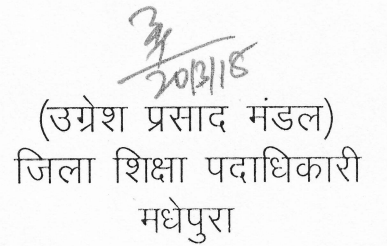 20/3/18
(उग्रेश प्रसाद मंडल)
जिला शिक्षा पदाधिकारी
मधेपुरा